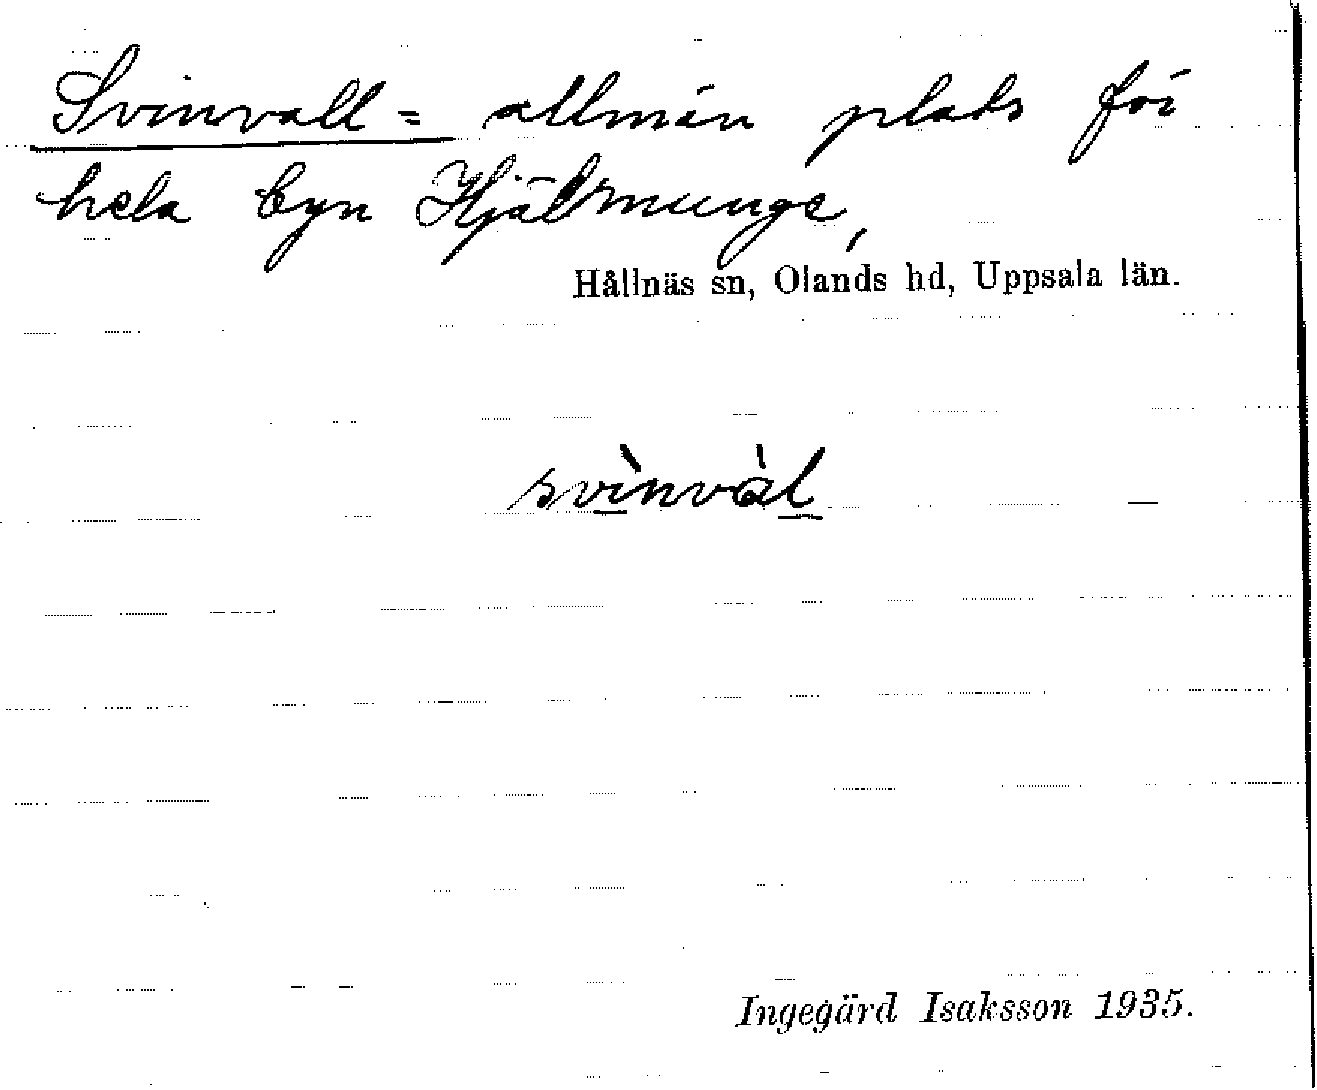 Svinvall = allmän plats för
hela byn Hjälmunge,
Hållnäs sn, Olands hd, Uppsala län.
svìnvàl
Ingegärd Isaksson 1935.